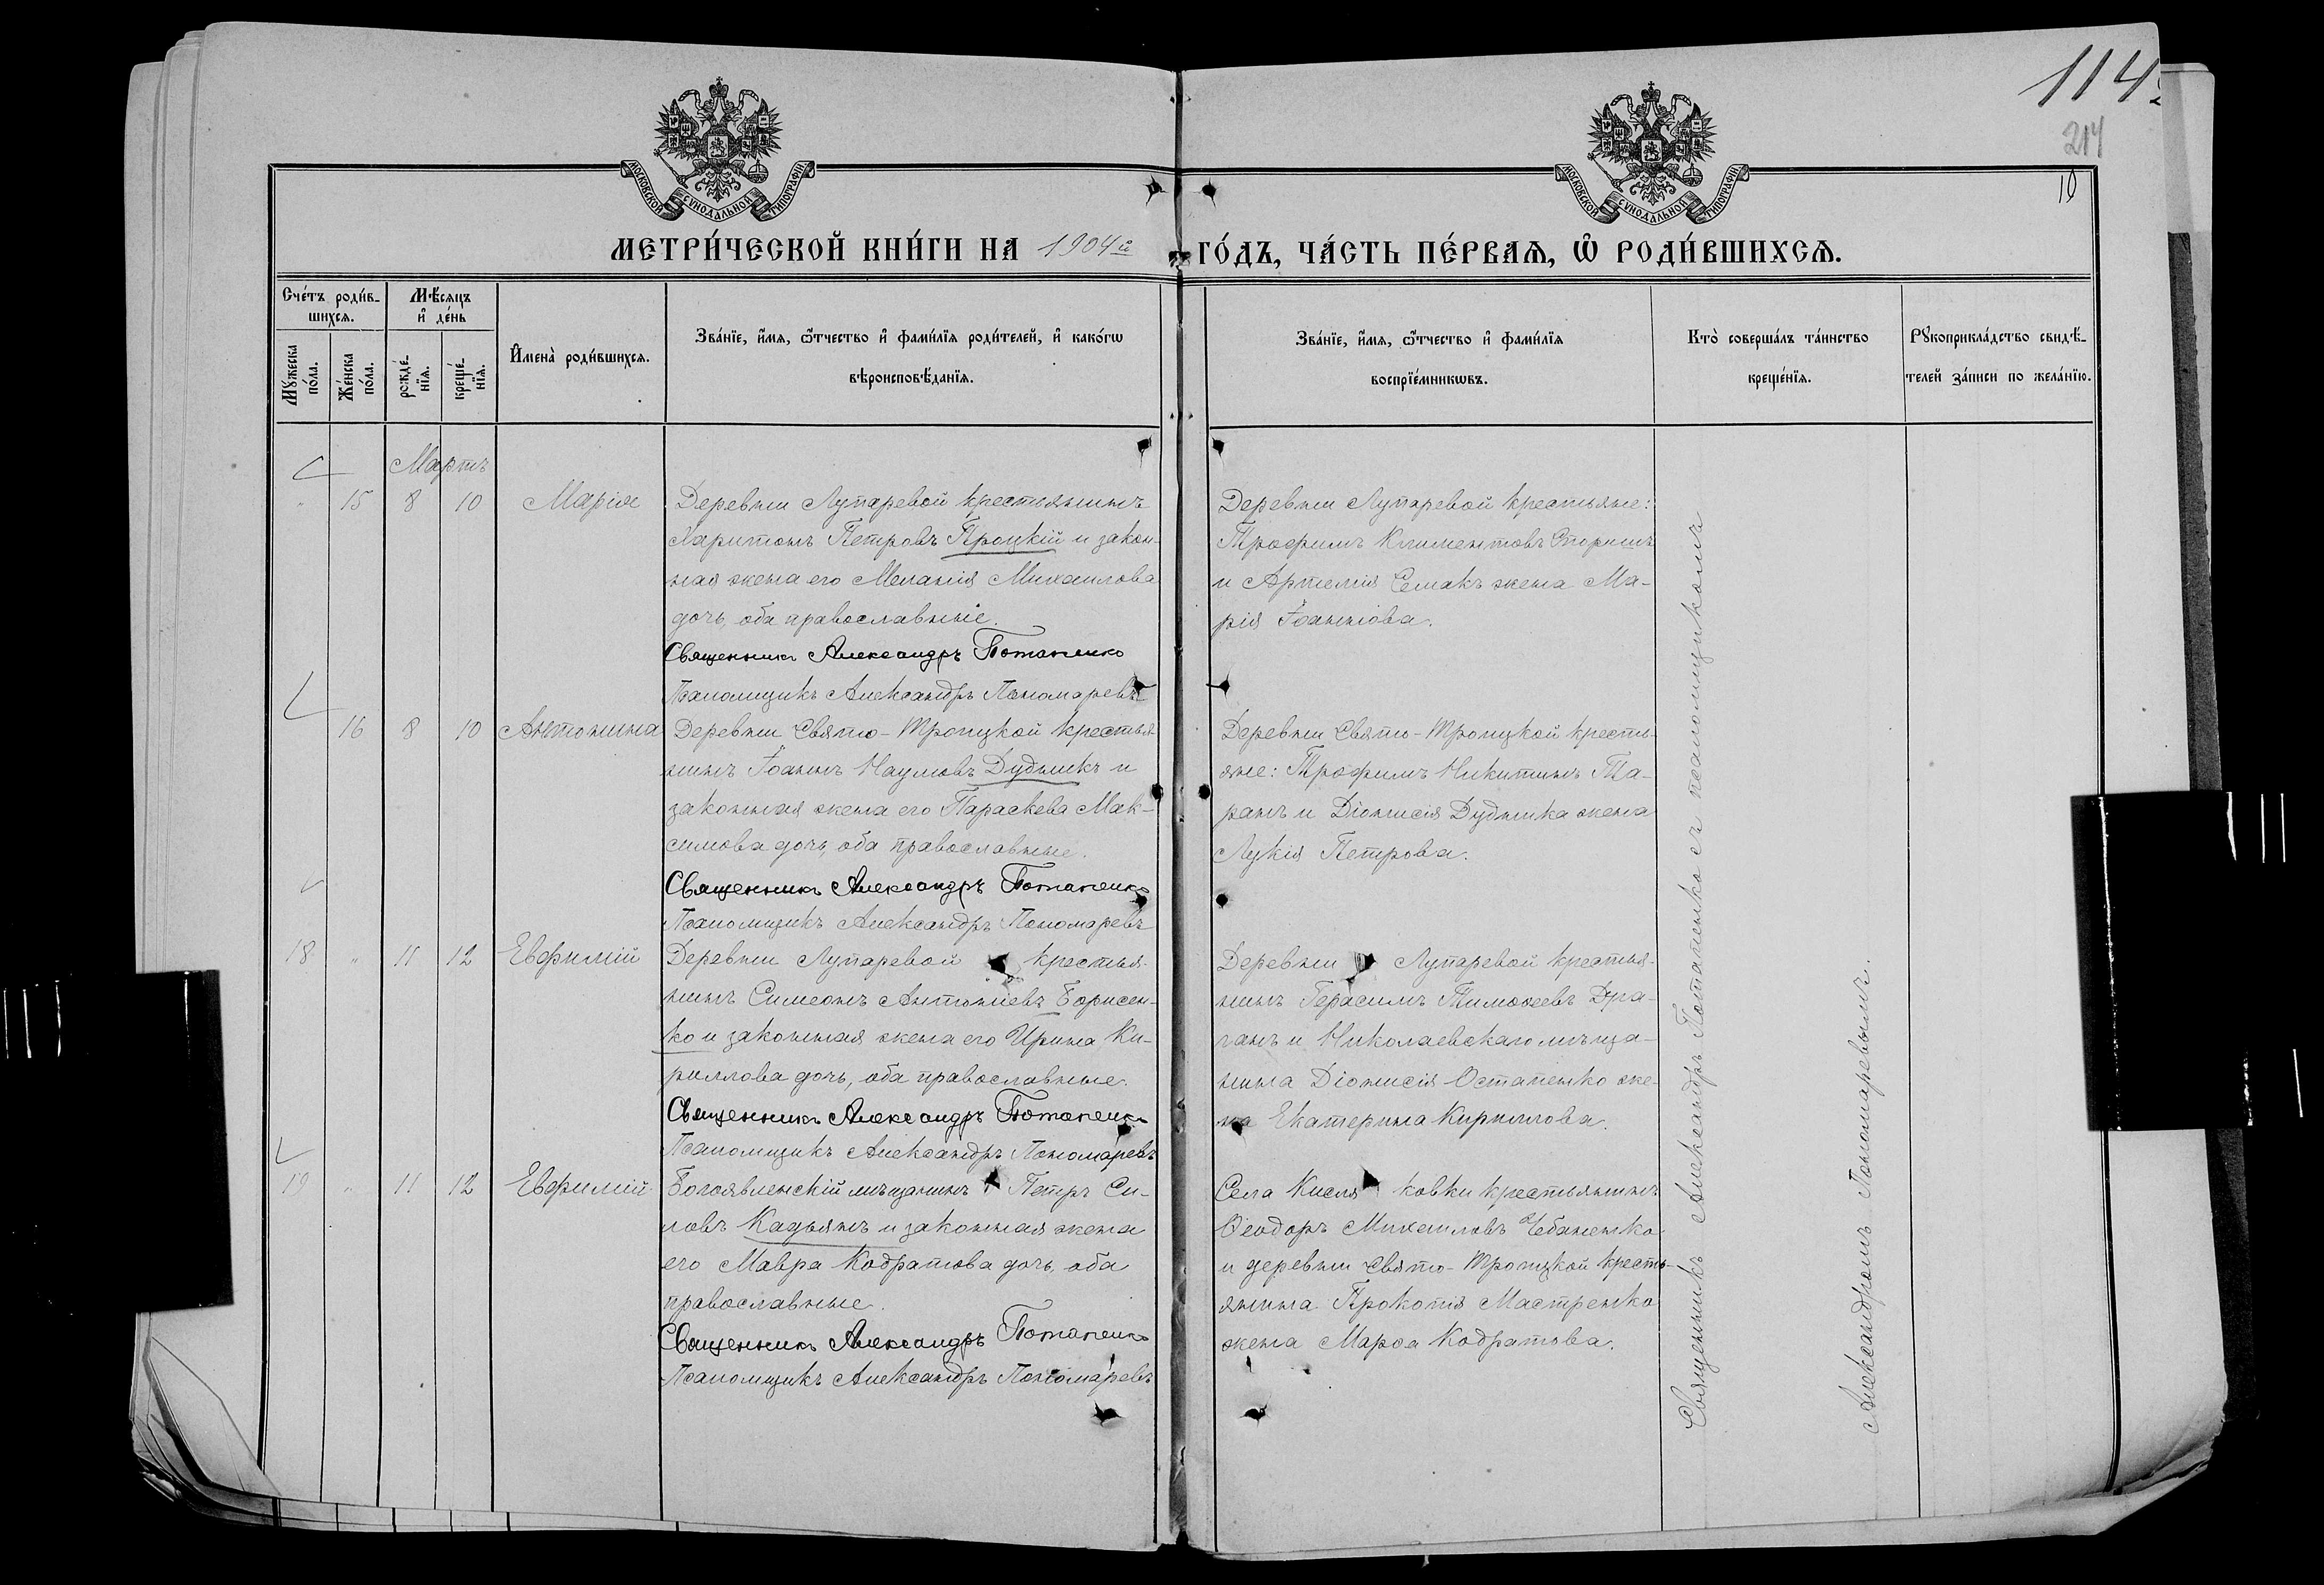 114
214
10
МОСКОВСКОЙ СѴНОДАЛЬНОЙ ТИПОГРАФІИ
МОСКОВСКОЙ СѴНОДАЛЬНОЙ ТИПОГРАФІИ
МЕТРИ́ЧЕСКОЙ КНИ́ГИ НА 1904й ГО́ДЪ, ЧА́СТЬ ПЕ́РВАѦ, Ѡ҆ РОДИ́ВШИХСѦ.
Сче́тъ роди́в-
шихсѧ.
Мꙋ́жеска по́ла.
Же́нска по́ла.
Мѣ́сѧцъ
и҆ де́нь
рожде́-
нїѧ.
креще́-
нїѧ.
И҆мена̀ роди́вшихсѧ.
Зва́нїе, и҆́мѧ, ѻ҆́тчество и҆ фами́лїѧ роди́телей, и҆ како́гѡ
вѣроисповѣ́данїѧ.
Зва́нїе, и҆́мѧ, ѻ҆́тчество и҆ фами́лїѧ
воспрїе́мникѡвъ.
Кто̀ соверша́лъ та́инство
креще́нїѧ.
Рꙋкоприкла́дство свидѣ́-
телей за́писи по жела́нїю.
Мартъ
" 15 8 10 Марія Деревни Лупаревой крестьянинъ
Харитонъ Петровъ Троцкій и закон-
ная жена его Меланія Михаилова
дочь, оба православные.
Священникъ Александръ Потапенко
Псаломщикъ Александръ Пономаревъ
Деревни Лупаревой крестьяне:
Трофимъ Климентовъ
и Артемія Семакъ жена Ма-
рія Іоаннова.
16 8 10 Антонина Деревни Свято-Троицкой крестья-
нинъ Іоаннъ Наумовъ Дудникъ и
законная жена его Параскева Мак-
симова дочь, оба православные.
Священникъ Александръ Потапенко
Псаломщикъ Александръ Пономаревъ
Деревни Свято-Троицкой кресть-
яне: Трофимъ Никитинъ Та-
ранъ и Діонисія Дудника жена
Лукія Петрова.
18 " 11 12 Евфимій Деревни Лупаревой крестья-
нинъ Симеонъ Антоніевъ Борисен-
ко и законная жена его Ирина Ки-
риллова дочь, оба православные.
Священникъ Александръ Потапенко
Псаломщикъ Александръ Пономаревъ
Деревни Лупаревой крестья-
нинъ Герасимъ Тимофеевъ Дра-
ганъ и Николаевскаго мѣща-
нина Діонисія Остапенко же-
на Екатерина Кириллова.
19 " 11 12 Евфимій Богоявленскій мѣщанинъ Петръ Си-
ловъ Кадьянъ и законная жена
его Мавра Кодратова дочь, оба
православные.
Священникъ Александръ Потапенко
Псаломщикъ Александръ Пономаревъ
Села Кисляковки крестьянинъ
Ѳеодоръ Михаиловъ Чебаненко
и деревни Свято-Троицкой кресть-
янина Прокопія Мастренко
жена Марѳа Кодратова.
Священникъ Александръ Потапенко съ псаломщикомъ
Александромъ Пономаревымъ.